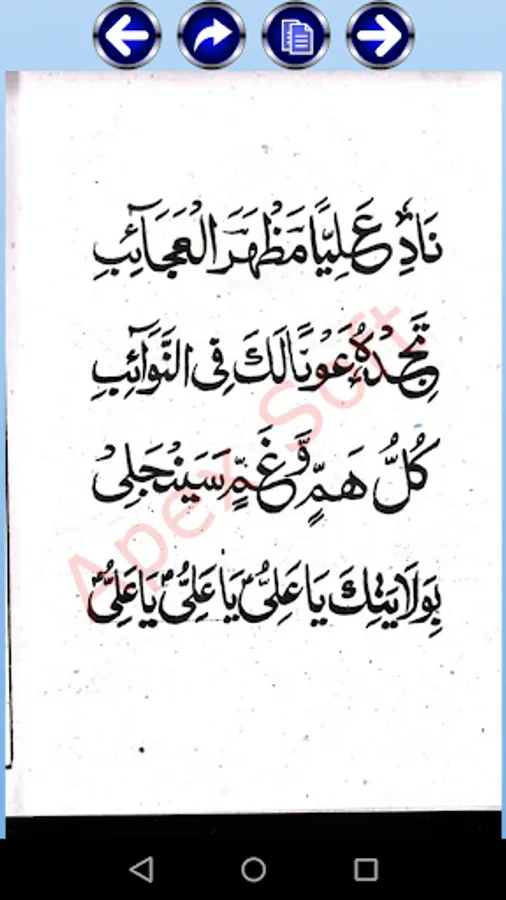 نَادِ عَلِيًّا مَظْهَرَ الْعَجَآئِبِ
تَجِدْهُ عَوْنًا لَكَ فِی النَّوَآئِبِ
كُلُّ هَمٍّ وَّغَمٍّ سَيَنْجَلِیْ
بِوَلَايَتِكَ يَا عَلِیُّ يَا عَلِیُّ يَا عَلِیُّ
Apex Soft